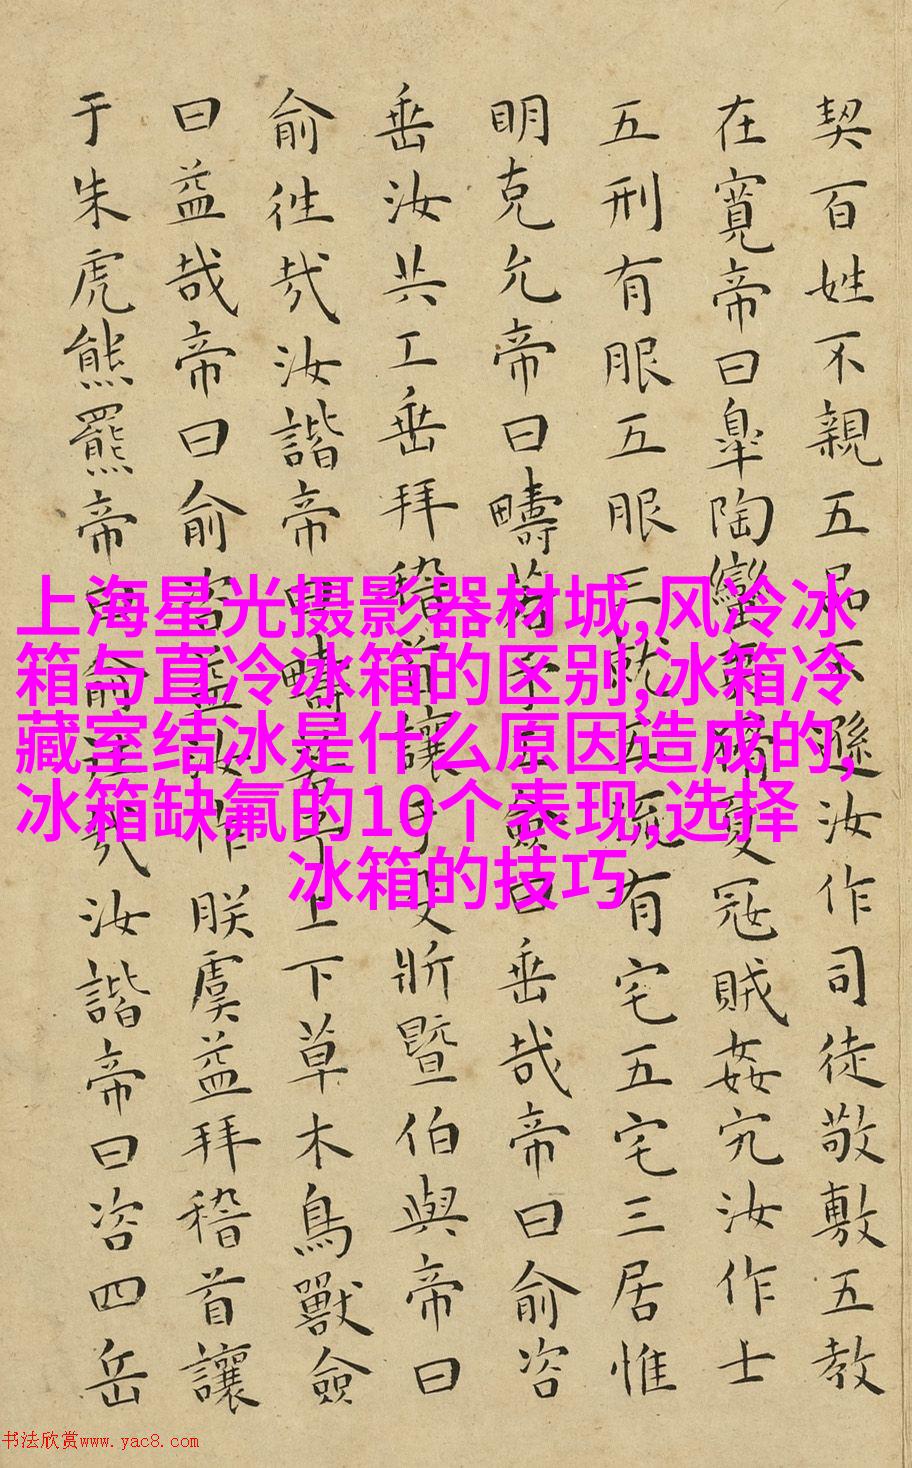 契百姓不親五品不遜汝作司徒敬敷五教
在寬帝曰臯陶蠻夷猾夏冦賊姦宄汝作士
五刑有服五服三就五流有宅五宅三居惟
明克允帝曰疇若予工僉曰垂哉帝曰俞咨
垂汝共工垂拜稽首讓于殳斨暨伯與帝曰
俞徃哉汝諧帝曰疇若予上下草木鳥獸僉
曰益哉帝曰俞咨益汝作朕虞益拜稽首讓
于朱虎熊羆帝曰俞徃哉汝諧帝曰咨四岳
上海星光摄影器材城,风冷冰
箱与直冷冰箱的区别,冰箱冷
藏室结冰是什么原因造成的,
冰箱缺氟的10个表现,选择
冰箱的技巧
书法欣赏www.yac8.com